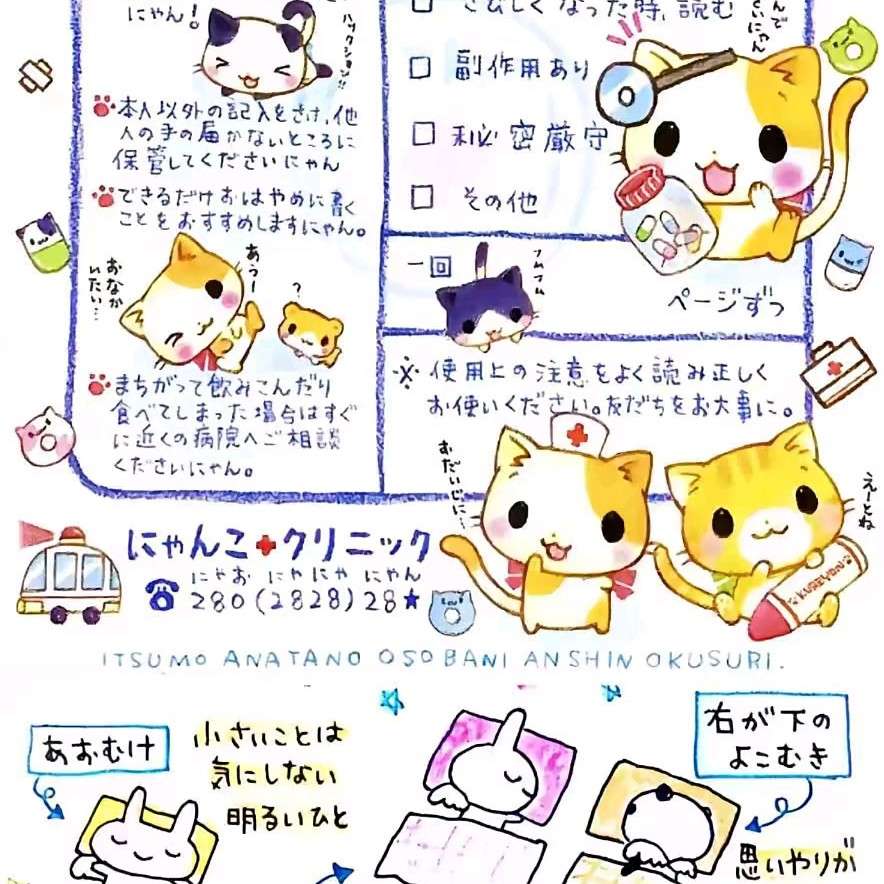 にゃん！
ハックション!!
本人以外の記入をさけ、他
人の手の届かないところに
保管してくださいにゃん
できるだけおはやめに書く
ことをおすすめしますにゃん。
おなか
いたい…
あうー
?
まちがって飲みこんだり
食べてしまった場合はすぐ
に近くの病院へご相談
くださいにゃん。
さびしくなった時、読む
副作用あり
秘密厳守
その他
一回
フムフム
ページずつ
※使用上の注意をよく読み正しく
お使いください。友だちをお大事に。
おだいじに…
えーとね
KUREYON
にゃんこ+クリニック
にゃお にゃにゃ にゃん
☎280(2828)28★
ITSUMO ANATANO OSOBANI ANSHIN OKUSURI.
あおむけ
小さいことは
気にしない
明るいひと
右が下の
よこむき
思いやりが